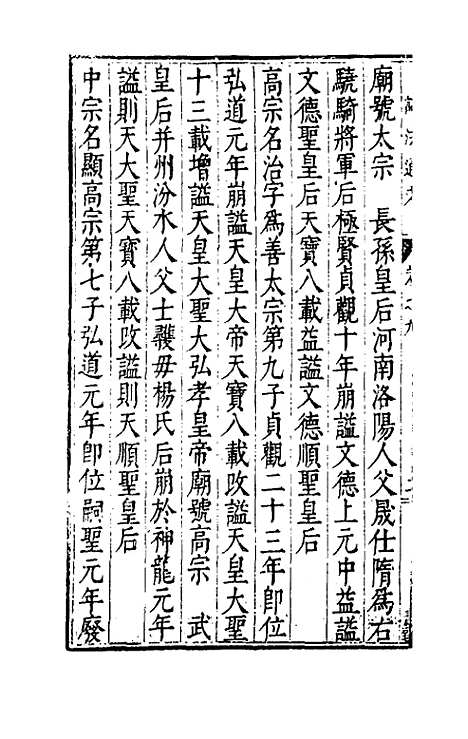 廟號太宗　長孫皇后河南洛陽人父晟仕隋爲右
驍騎將軍后極賢貞觀十年崩謚文德上元中益謚
文德聖皇后天寶八載益謚文德順聖皇后
高宗名治字爲善太宗第九子貞觀二十三年卽位
弘道元年崩謚天皇大帝天寶八載改謚天皇大聖
十三載增謚天皇大聖大弘孝皇帝廟號高宗　武
皇后并州汾水人父士彠毋楊氏后崩於神龍元年
謚則天大聖天寶八載改謚則天順聖皇后
中宗名顯高宗第七子弘道元年卽位嗣聖元年廢